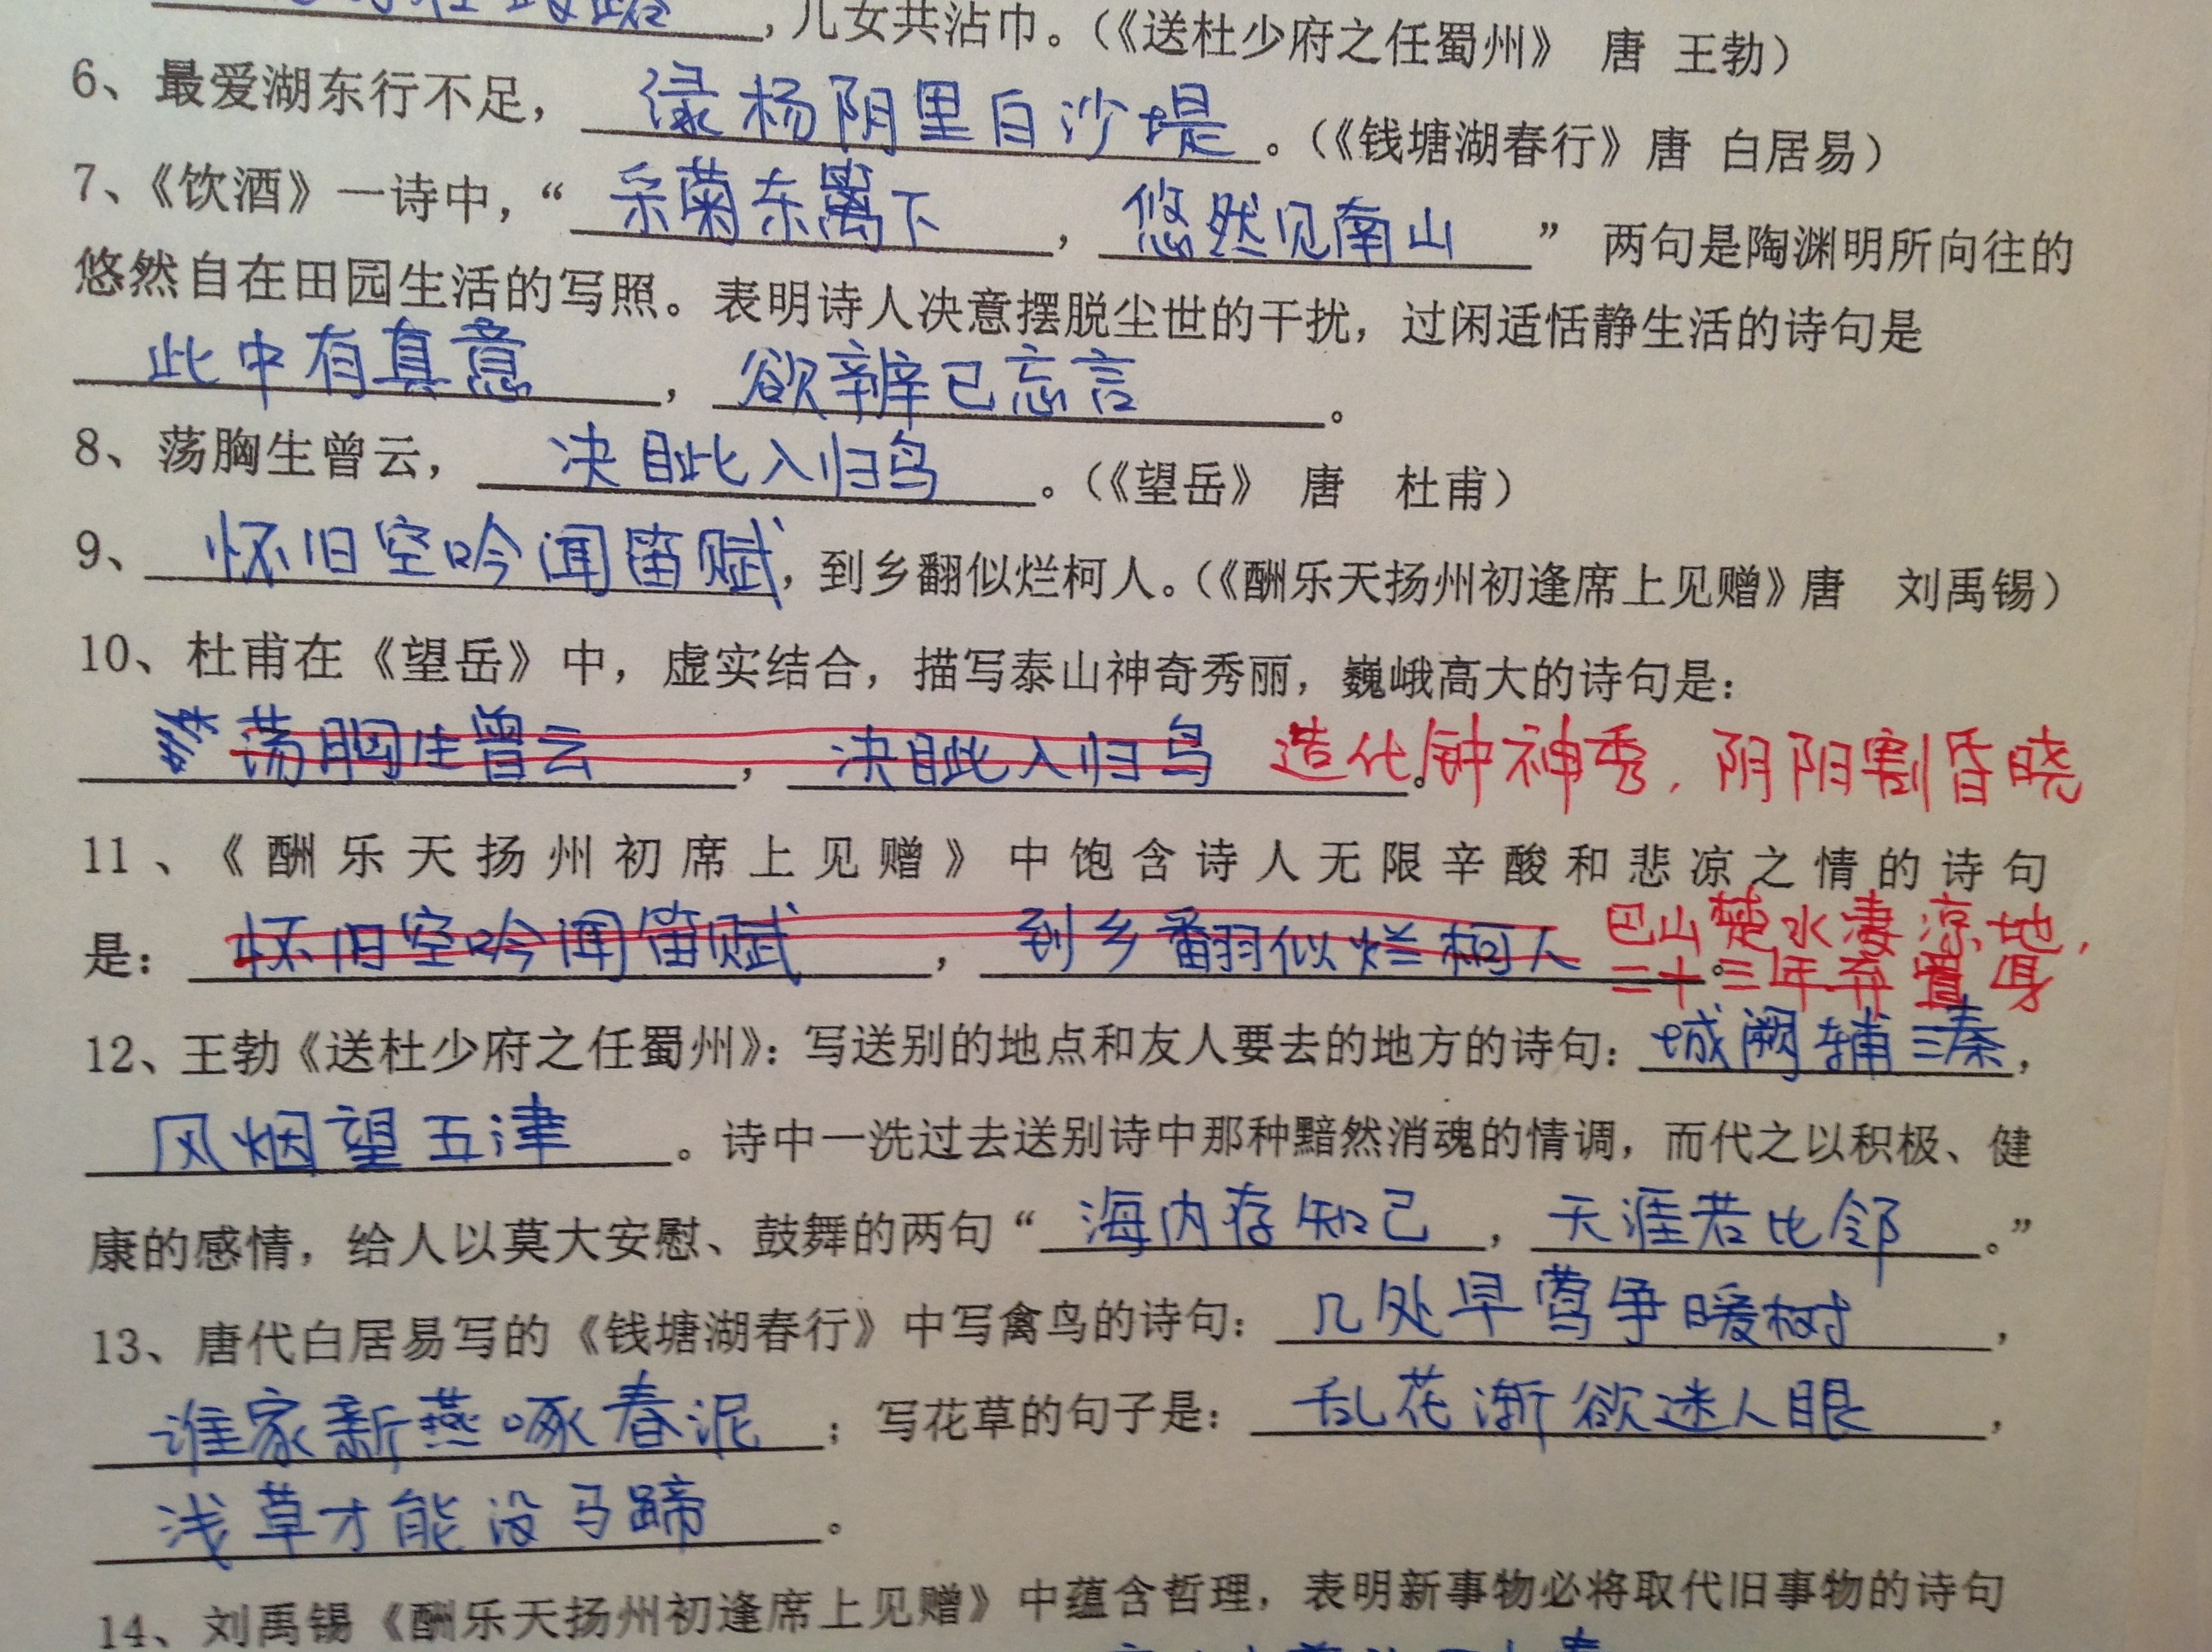 ，儿女共沾巾。（《送杜少府之任蜀州》 唐 王勃）
6、最爱湖东行不足，绿杨阴里白沙堤。（《钱塘湖春行》唐 白居易）
7、《饮酒》一诗中，“采菊东篱下，悠然见南山” 两句是陶渊明所向往的
悠然自在田园生活的写照。表明诗人决意摆脱尘世的干扰，过闲适恬静生活的诗句是
此中有真意，欲辨已忘言。
8、荡胸生曾云，决眦入归鸟。（《望岳》 唐 杜甫）
9、怀旧空吟闻笛赋，到乡翻似烂柯人。（《酬乐天扬州初逢席上见赠》唐 刘禹锡）
10、杜甫在《望岳》中，虚实结合，描写泰山神奇秀丽，巍峨高大的诗句是：
荡胸生曾云，决眦入归鸟。造化钟神秀，阴阳割昏晓
11、《酬乐天扬州初席上见赠》中饱含诗人无限辛酸和悲凉之情的诗句
是：怀旧空吟闻笛赋，到乡翻似烂柯人。巴山楚水凄凉地，
二十三年弃置身
12、王勃《送杜少府之任蜀州》：写送别的地点和友人要去的地方的诗句：城阙辅三秦，
风烟望五津。诗中一洗过去送别诗中那种黯然消魂的情调，而代之以积极、健
康的感情，给人以莫大安慰、鼓舞的两句“海内存知己，天涯若比邻。”
13、唐代白居易写的《钱塘湖春行》中写禽鸟的诗句：几处早莺争暖树，
谁家新燕啄春泥；写花草的句子是：乱花渐欲迷人眼，
浅草才能没马蹄。
14、刘禹锡《酬乐天扬州初逢席上见赠》中蕴含哲理，表明新事物必将取代旧事物的诗句